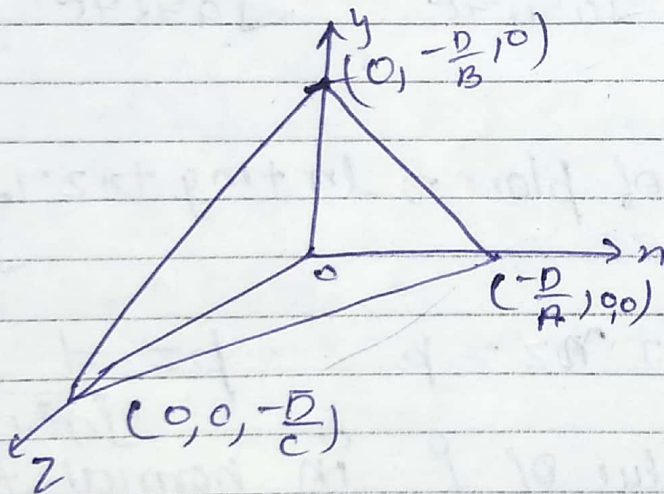 y
(0, -D/B, 0)
o
x
(-D/A, 0, 0)
(0, 0, -D/C)
Z